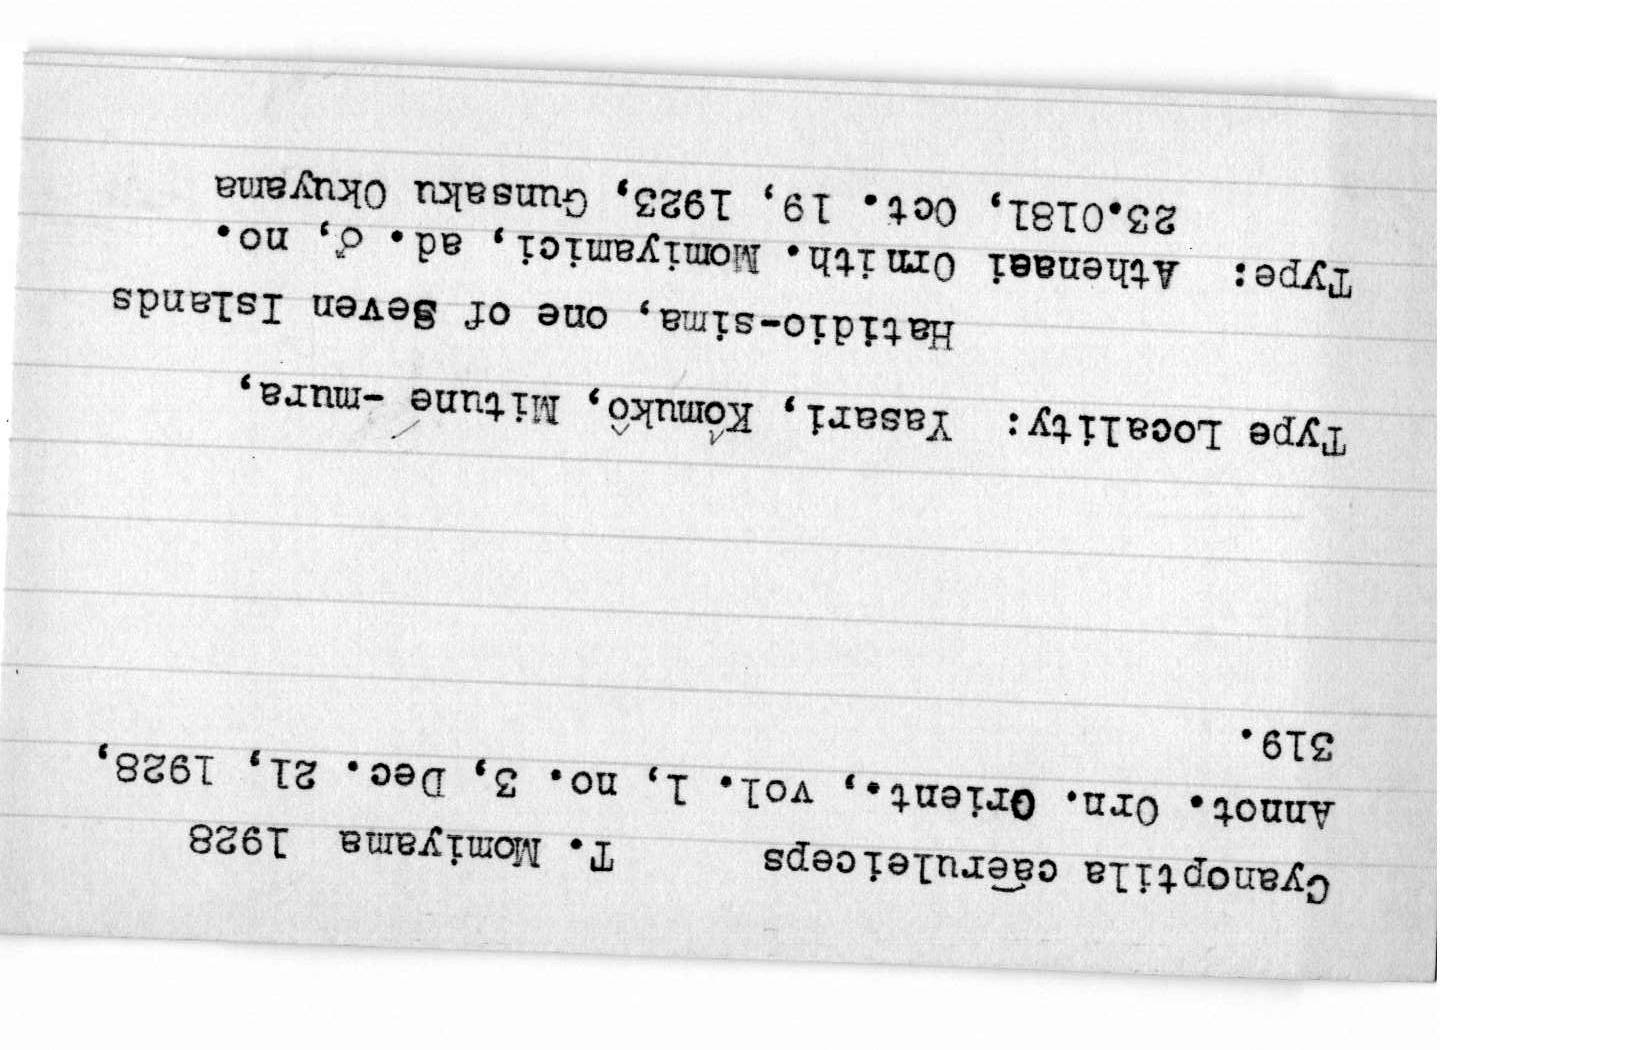 Cyanoptila caeruleiceps T. Momiyama 1928
Annot. Orn. Orient., vol. 1, no. 3, Dec. 21, 1928,
319.
Type Locality: Yasari, Kômukô, Mitune -mura,
Hatidio-sima, one of Seven Islands
Type: Athenaei Ornith. Momiyamici, ad. ♂, no.
23.0181, Oct. 19, 1923, Gunsaku Okuyama